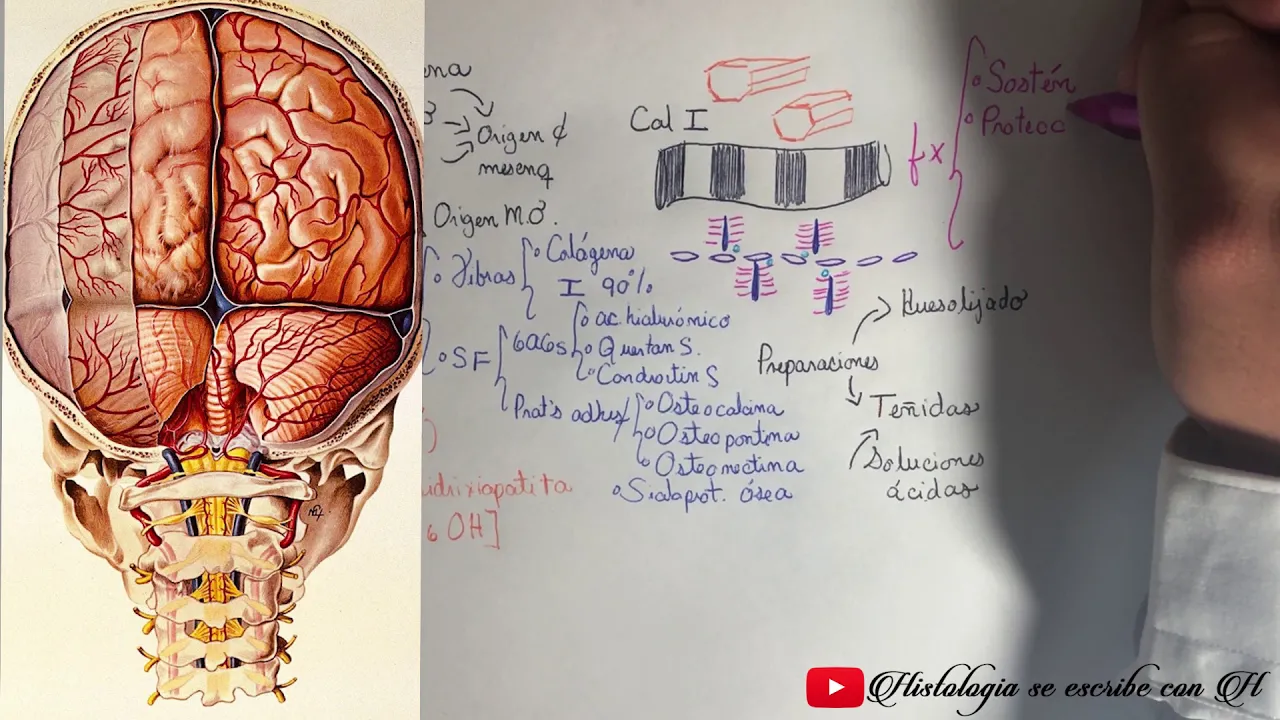 ena
3
Origen ₵
mesenq
Origen M.O.
Fibras
Colágena
I 90%
SF
GAGs
ac. hialurónico
Queratan S.
Condroitin S
Prot's adhes
Osteocalcina
Osteopontina
Osteonectina
Sialoprot. ósea
idrixiapatita
6 OH]
Col I
fx
Sostén
Protecc
Preparaciones
Hueso lijado
Teñidas
Soluciones
ácidas
Histologia se escribe con H